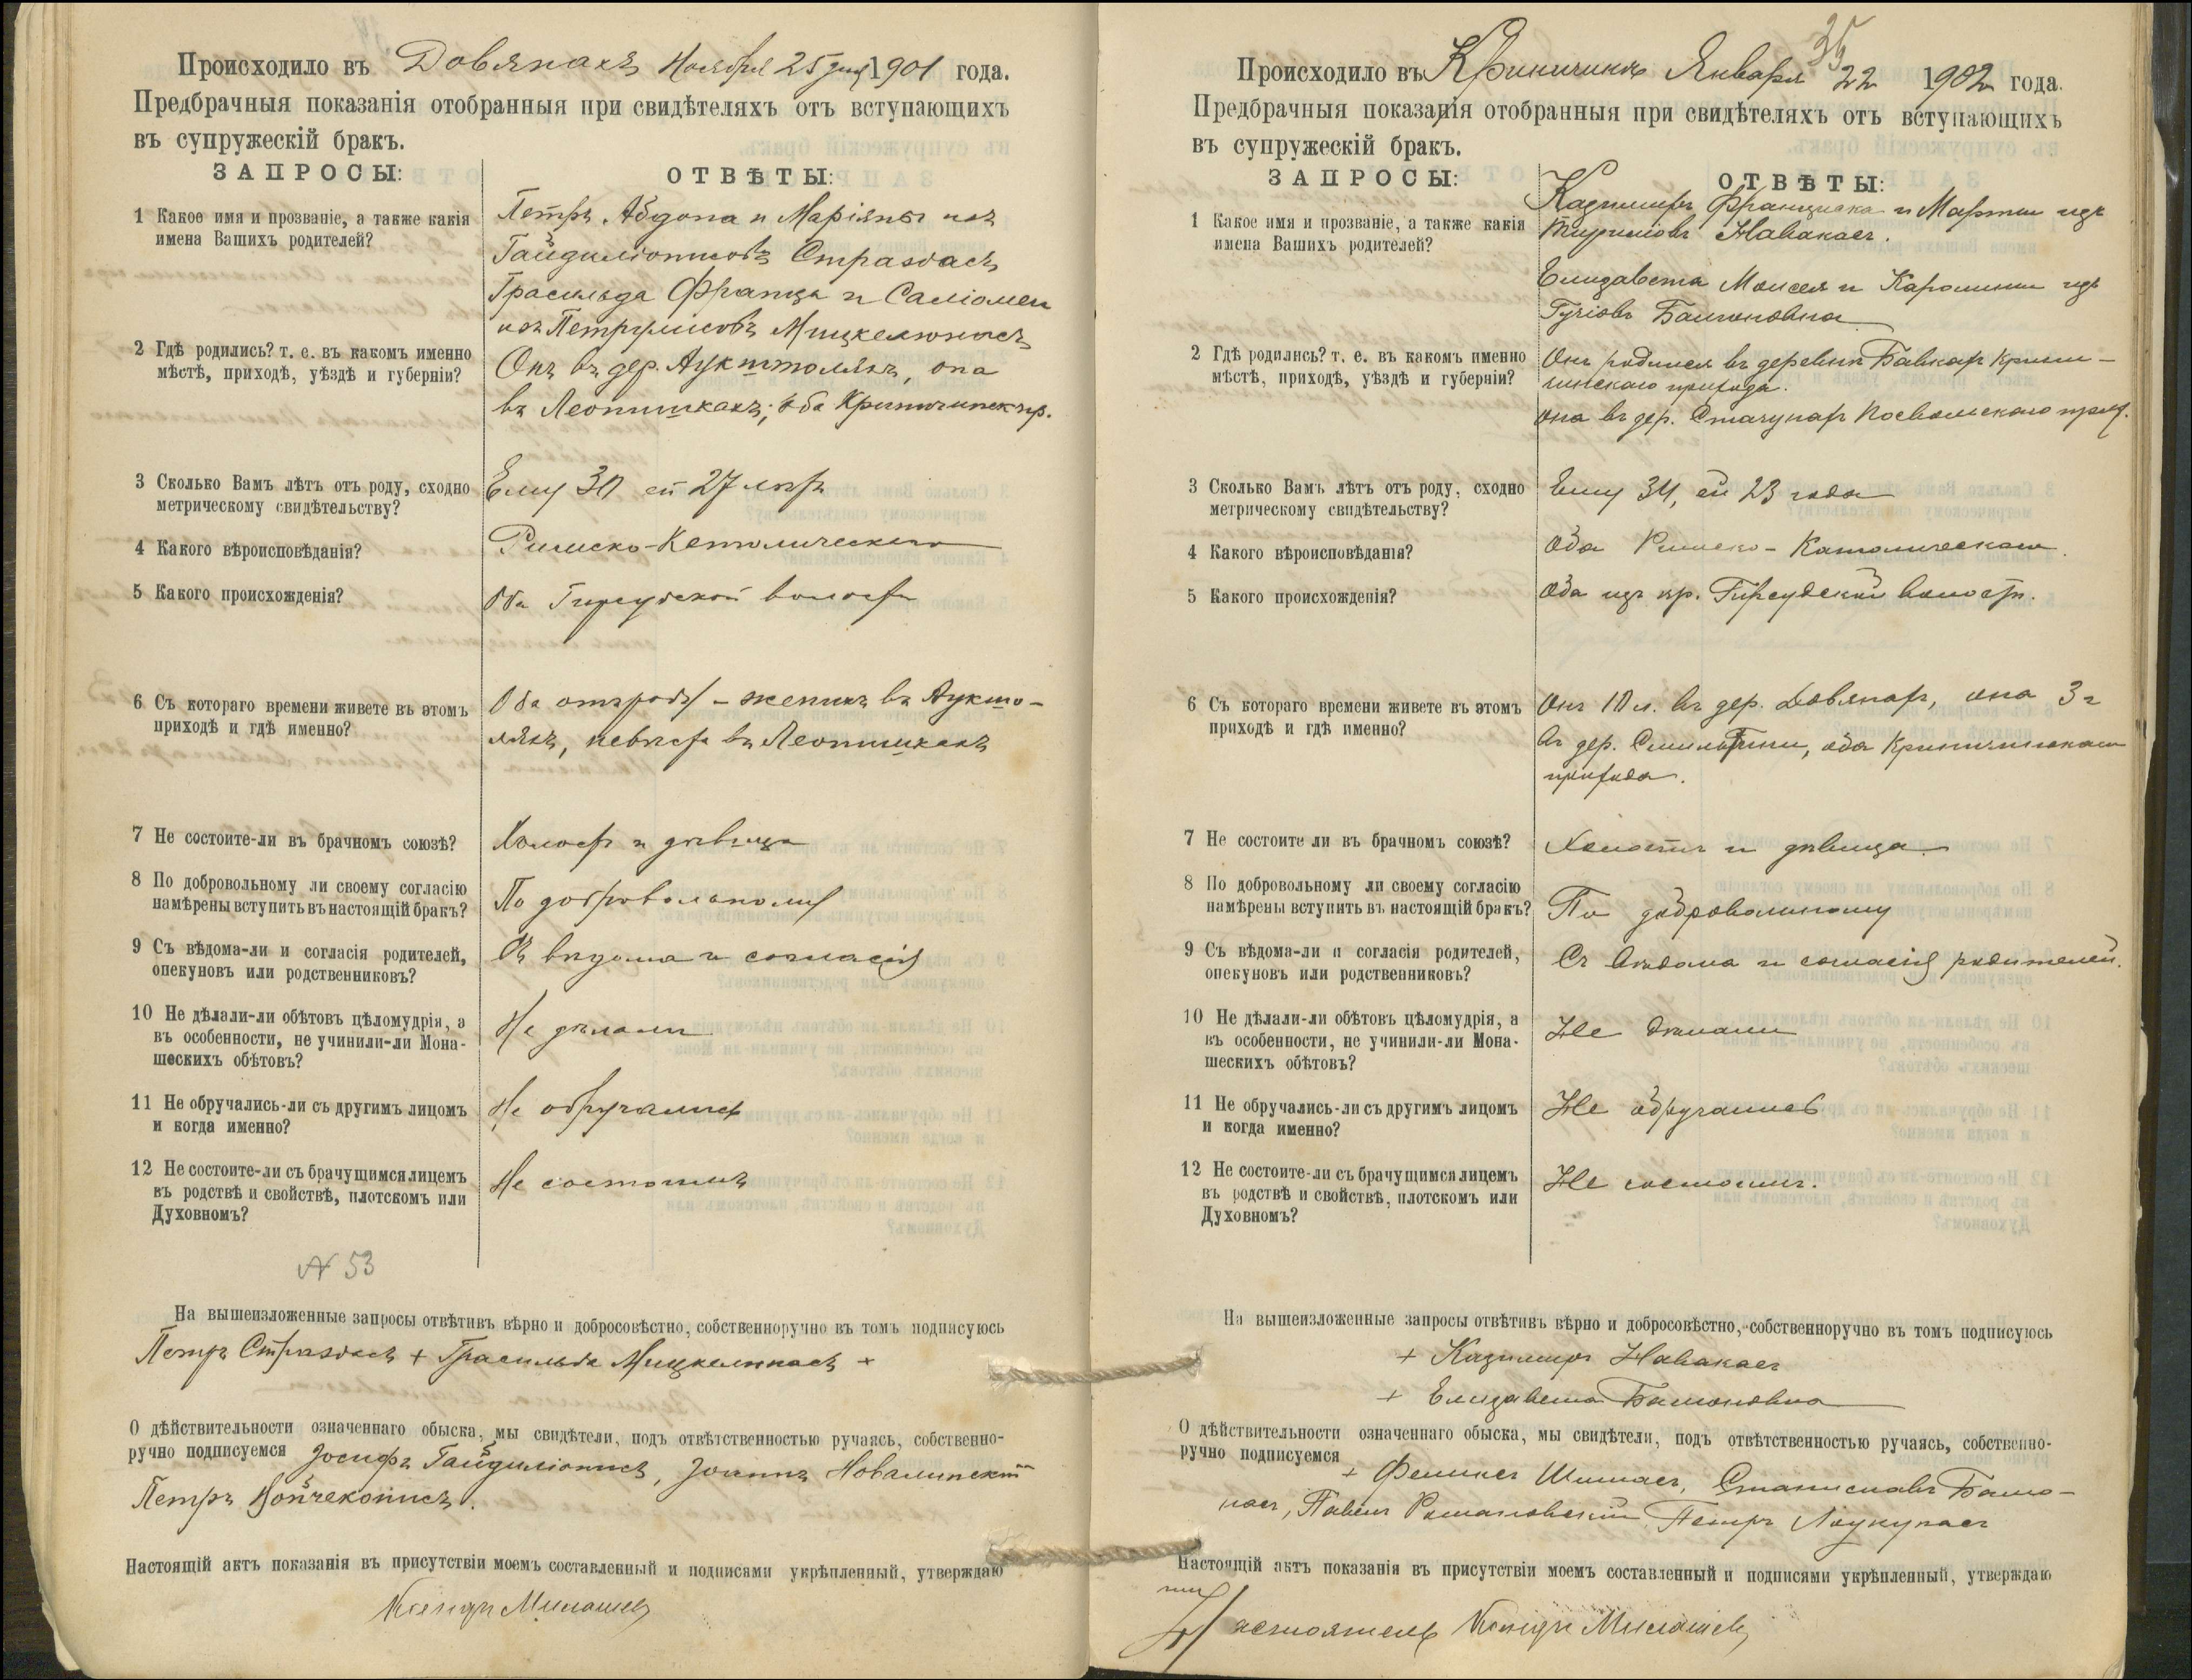 Происходило въ Довянахъ Ноября 25 дня 1901 года.
Предбрачныя показанія отобранныя при свидѣтеляхъ отъ вступающихъ
въ супружескій бракъ.
ЗАПРОСЫ: ОТВѢТЫ:
1 Какое имя и прозваніе, а также какія
имена Вашихъ родителей?
Петръ Абдона и Маріяны изъ
Гайдиліонисовъ Страздасъ
Грасильда Франца и Саліомеи
изъ Петрулисовъ Мицкелюнасъ
2 Гдѣ родились? т. е. въ какомъ именно
мѣстѣ, приходѣ, уѣздѣ и губерніи?
Онъ въ дер. Аукштоляхъ, она
въ Леонишкахъ; оба Криничинск. пр.
3 Сколько Вамъ лѣтъ отъ роду, сходно
метрическому свидѣтельству?
Ему 30 ей 27 лѣтъ
4 Какого вѣроисповѣданія?
Римско-Католическаго
5 Какого происхожденія?
Оба Гирсудской волости
6 Съ котораго времени живете въ этомъ
приходѣ и гдѣ именно?
Оба отъ роду – женихъ въ Аукшто-
ляхъ, невѣста въ Леонишкахъ
7 Не состоите-ли въ брачномъ союзѣ?
Холостъ и дѣвица
8 По добровольному ли своему согласію
намѣрены вступить въ настоящій бракъ?
По добровольному
9 Съ вѣдома-ли и согласія родителей,
опекуновъ или родственниковъ?
Съ вѣдома и согласія
10 Не дѣлали-ли обѣтовъ цѣломудрія, а
въ особенности, не учинили-ли Мона-
шескихъ обѣтовъ?
Не дѣлали
11 Не обручались-ли съ другимъ лицомъ
и когда именно?
Не обручались
12 Не состоите-ли съ брачущимся лицемъ
въ родствѣ и свойствѣ, плотскомъ или
Духовномъ?
Не состоимъ
N 53
На вышеизложенные запросы отвѣтивъ вѣрно и добросовѣстно, собственноручно въ томъ подписуюсь
Петръ Страздасъ + Грасильда Мицкелюнасъ +
О дѣйствительности означеннаго обыска, мы свидѣтели, подъ отвѣтственностью ручаясь, собственно-
ручно подписуемся Іосифъ Гайдиліонисъ, Іоаннъ Новалинскій
Петръ
Настоящій актъ показанія въ присутствіи моемъ составленный и подписями укрѣпленный, утверждаю
Ксендзъ Милашевъ
35
Происходило въ Криничинѣ Января 22 1902 года.
Предбрачныя показанія отобранныя при свидѣтеляхъ отъ вступающихъ
въ супружескій бракъ.
ЗАПРОСЫ: ОТВѢТЫ:
1 Какое имя и прозваніе, а также какія
имена Вашихъ родителей?
Казимиръ Франциска и Марты изъ
Навакасъ.
Елизавета Моисея и Каролины изъ
Гучіовъ Бамоновна
2 Гдѣ родились? т. е. въ какомъ именно
мѣстѣ, приходѣ, уѣздѣ и губерніи?
Онъ родился въ деревнѣ Бавкаръ Крини-
чинскаго прихода.
Она въ дер. Стачунаръ Посвольскаго прих.
3 Сколько Вамъ лѣтъ отъ роду, сходно
метрическому свидѣтельству?
Ему 34, ей 23 года
4 Какого вѣроисповѣданія?
Оба Римско-Католическаго.
5 Какого происхожденія?
Оба изъ кр. Гирсудской волости.
6 Съ котораго времени живете въ этомъ
приходѣ и гдѣ именно?
Онъ 10 л. въ дер. Довянахъ, она 3 г
въ дер. Смильгини, оба Криничинскаго
прихода.
7 Не состоите ли въ брачномъ союзѣ?
Холостъ и дѣвица.
8 По добровольному ли своему согласію
намѣрены вступить въ настоящій бракъ?
По добровольному
9 Съ вѣдома-ли и согласія родителей,
опекуновъ или родственниковъ?
Съ вѣдома и согласія родителей.
10 Не дѣлали-ли обѣтовъ цѣломудрія, а
въ особенности, не учинили-ли Мона-
шескихъ обѣтовъ?
Не дѣлали
11 Не обручались-ли съ другимъ лицомъ
и когда именно?
Не обручались
12 Не состоите-ли съ брачущимся лицемъ
въ родствѣ и свойствѣ, плотскомъ или
Духовномъ?
Не состоимъ.
На вышеизложенные запросы отвѣтивъ вѣрно и добросовѣстно, собственноручно въ томъ подписуюсь
+ Казимиръ Навакасъ
+ Елизавета Бамоновна
О дѣйствительности означеннаго обыска, мы свидѣтели, подъ отвѣтственностью ручаясь, собственно-
ручно подписуемся
+ Феликсъ Шимасъ, Станиславъ Бамо-
насъ, Павелъ Романовскій Петръ Лаукунасъ
Настоящій актъ показанія въ присутствіи моемъ составленный и подписями укрѣпленный, утверждаю
Настоятель Ксендзъ Милашевъ